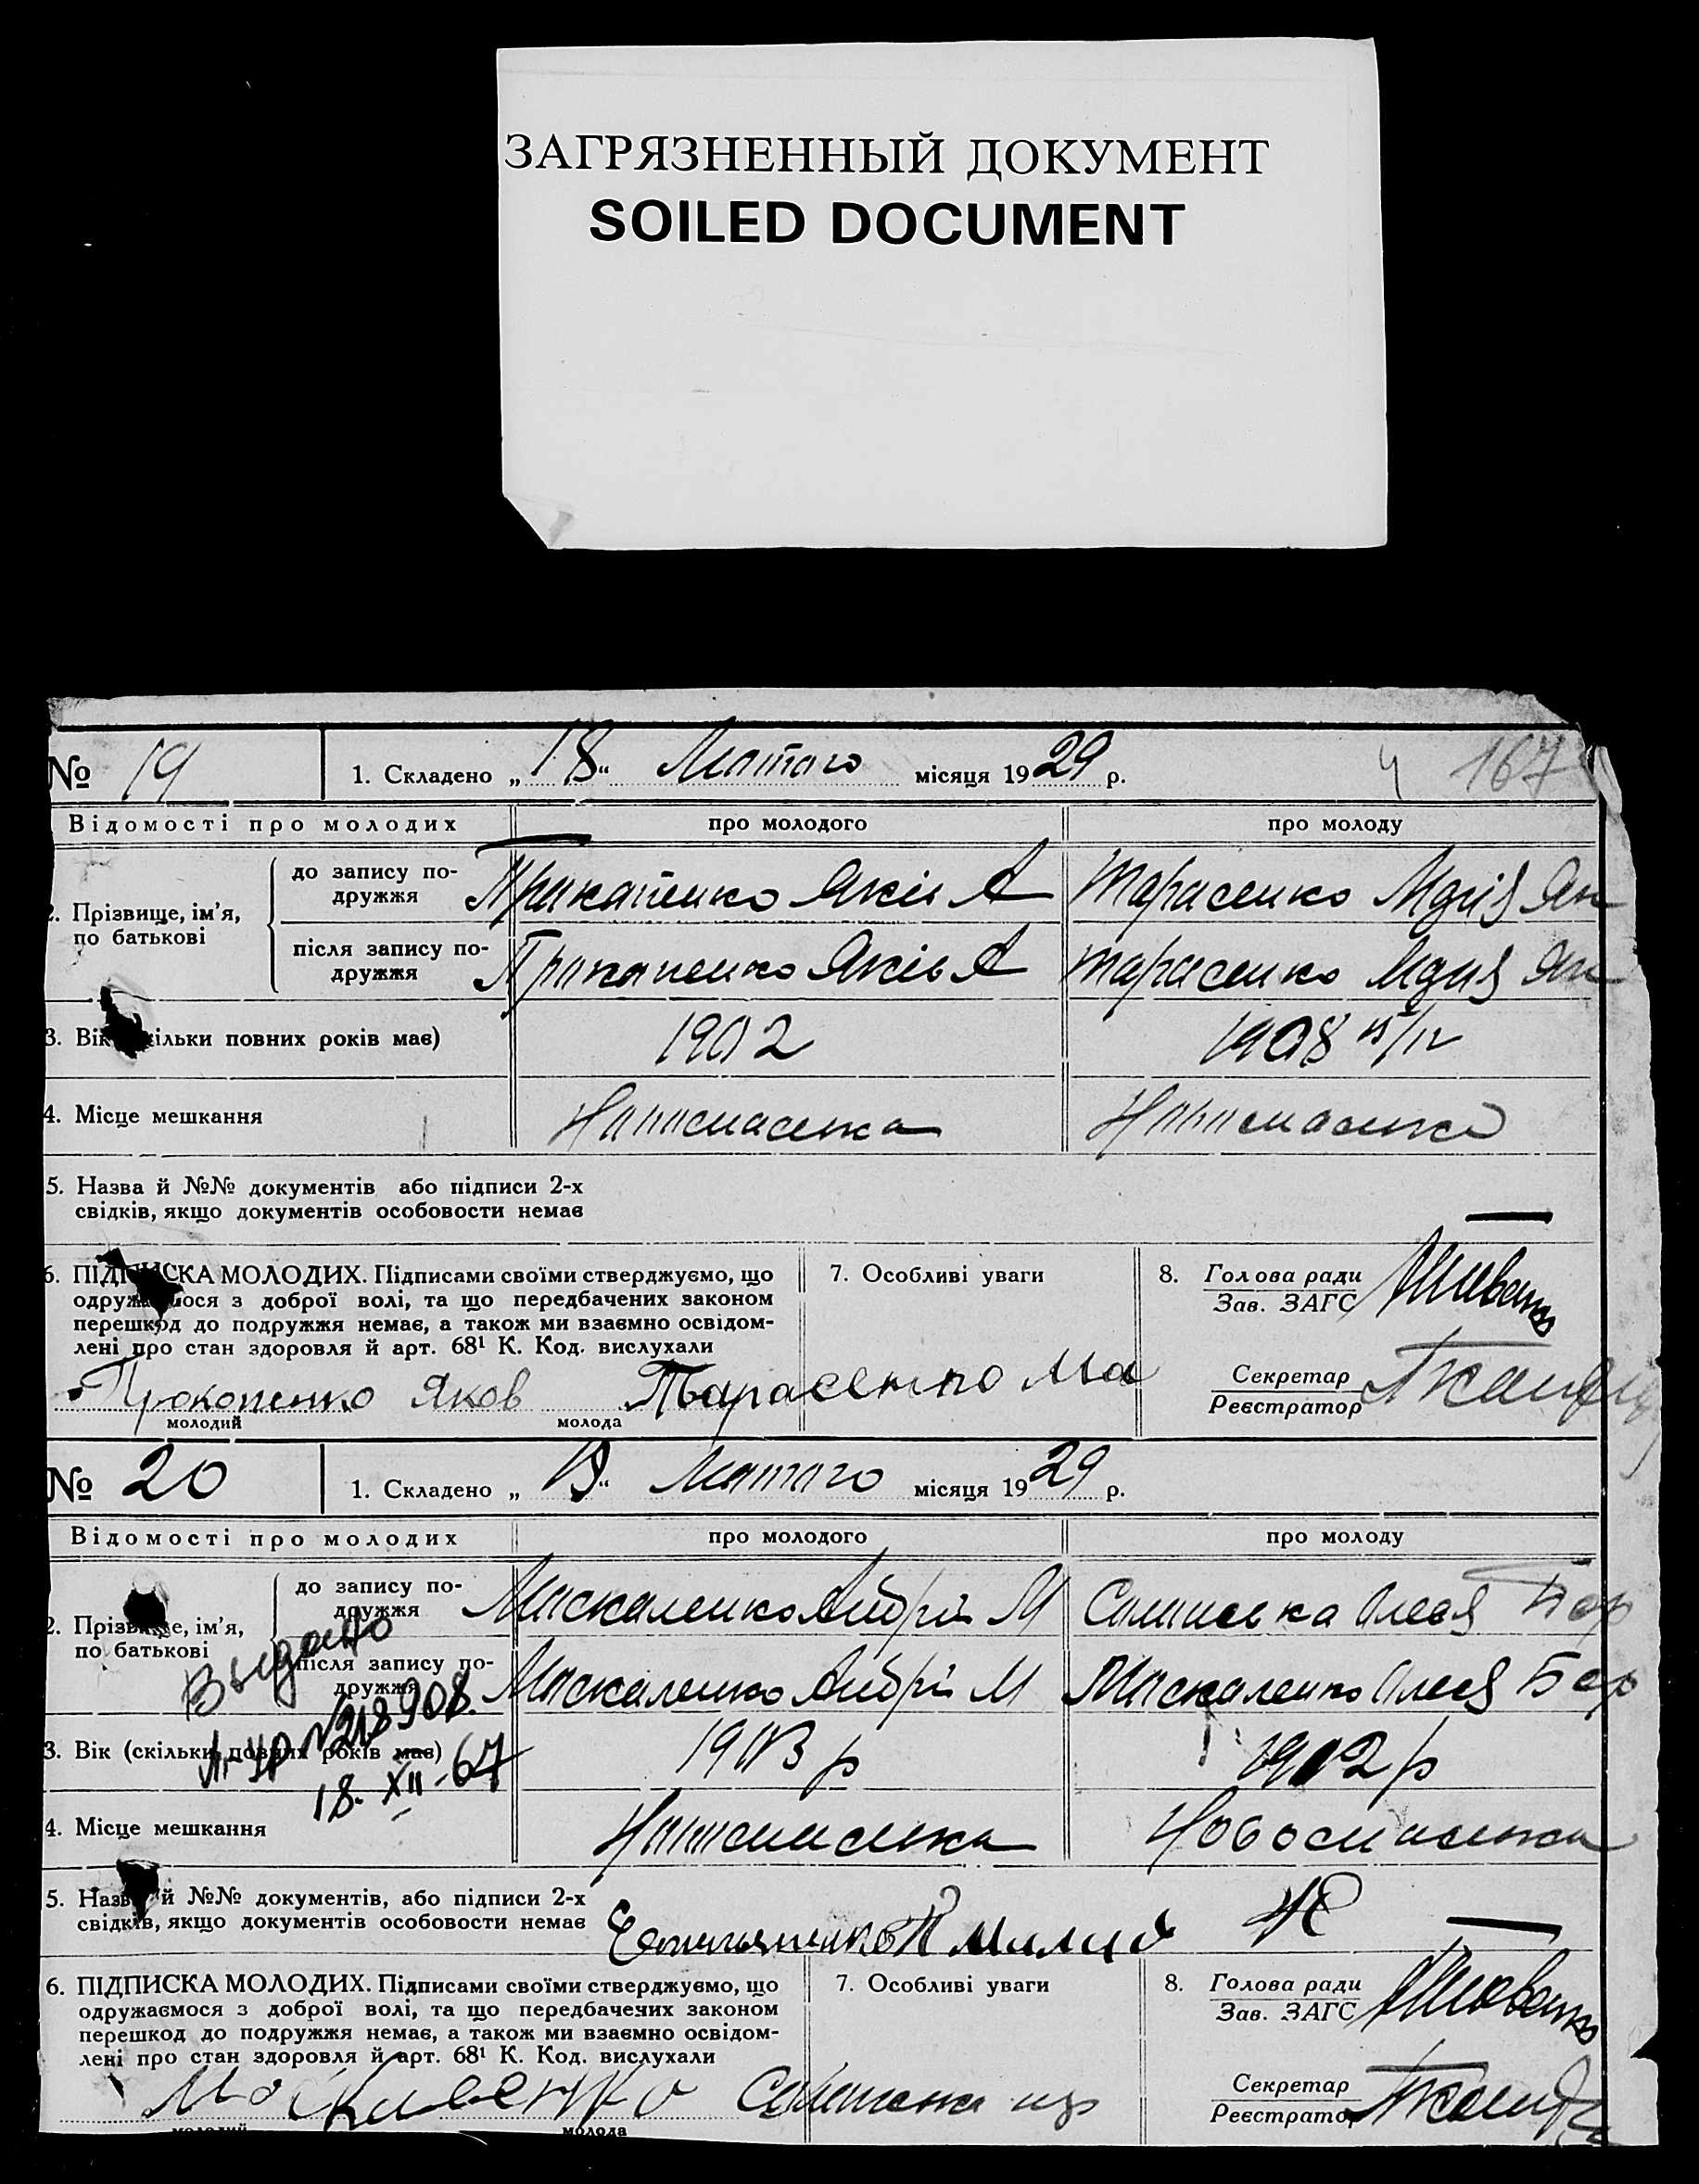 ЗАГРЯЗНЕННЫЙ ДОКУМЕНТ
SOILED DOCUMENT
№ 19 1. Складено „18“ Лютого місяця 1929 р. 167
Відомості про молодих про молодого про молоду
2. Прізвище, ім’я, по батькові
до запису по-
дружжя Пракапенко Яків А Тарасенко Марія Ян
після запису по-
дружжя Пракапенко Яків А Тарасенко Марія Ян
3. Вік (скільки повних років має) 1902 1908
4. Місце мешкання
5. Назва й №№ документів або підписи 2-х
свідків, якщо документів особовости немає
6. ПІДПИСКА МОЛОДИХ. Підписами своїми стверджуємо, що
одружаємося з доброї волі, та що передбачених законом
перешкод до подружжя немає, а також ми взаємно освідом-
лені про стан здоровля й арт. 68¹ К. Код. вислухали
7. Особливі уваги
8. Голова ради
Зав. ЗАГС
Секретар
Реєстратор
Прокопенко Яков Тарасенко Ма
молодий молода
№ 20 1. Складено „ “ Лютого місяця 1929 р.
Відомості про молодих про молодого про молоду
2. Прізвище, ім’я,
по батькові
до запису по-
дружжя Маскаленко Андрій М
після запису по-
дружжя Маскаленко Андрій М Маскаленко Олеся Бор
Выдано
№218908.
18. XII-67
3. Вік (скільки повних років має) 1903 р 1902 р
4. Місце мешкання
5. Назва й №№ документів, або підписи 2-х
свідків, якщо документів особовости немає
6. ПІДПИСКА МОЛОДИХ. Підписами своїми стверджуємо, що
одружаємося з доброї волі, та що передбачених законом
перешкод до подружжя немає, а також ми взаємно освідом-
лені про стан здоровля й арт. 68¹ К. Код. вислухали
7. Особливі уваги
8. Голова ради
Зав. ЗАГС
Секретар
Реєстратор
Москаленко
молодий молода